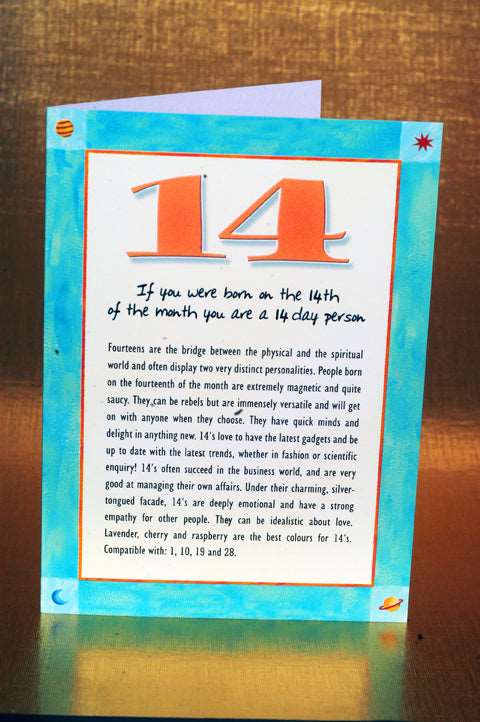 14
If you were born on the 14th
of the month you are a 14 day person
Fourteens are the bridge between the physical and the spiritual
world and often display two very distinct personalities. People born
on the fourteenth of the month are extremely magnetic and quite
saucy. They can be rebels but are immensely versatile and will get
on with anyone when they choose. They have quick minds and
delight in anything new. 14's love to have the latest gadgets and be
up to date with the latest trends, whether in fashion or scientific
enquiry! 14's often succeed in the business world, and are very
good at managing their own affairs. Under their charming, silver-
tongued facade, 14's are deeply emotional and have a strong
empathy for other people. They can be idealistic about love.
Lavender, cherry and raspberry are the best colours for 14's.
Compatible with: 1, 10, 19 and 28.